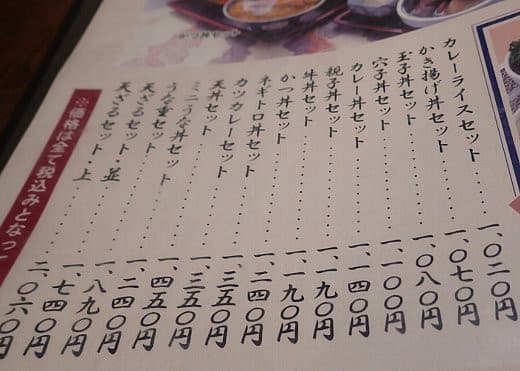 かつ丼セット
カレーライスセット………一、〇二〇円
かき揚げ丼セット………一、〇七〇円
玉子丼セット………一、〇八〇円
穴子丼セット………一、一〇〇円
カレー丼セット………一、二四〇円
親子丼セット………一、一九〇円
牛丼セット………一、一九〇円
かつ丼セット………一、二四〇円
ネギトロ丼セット………一、三五〇円
カツカレーセット………一、三五〇円
天丼セット………一、四五〇円
ミニうな丼セット………一、二四〇円
うな重セット………一、八九〇円
天ざるセット・並………一、七四〇円
天ざるセット・上………二、〇六〇円
※価格は全て税込みとなっ